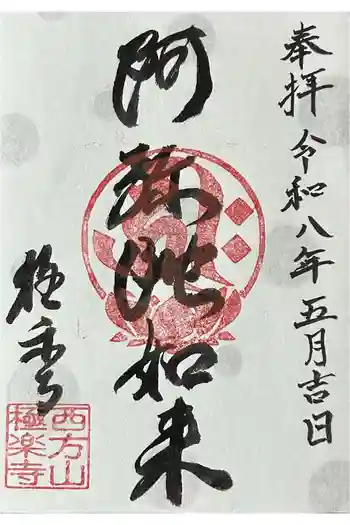 奉拝 令和八年五月吉日
阿弥陀如来
極楽寺
西方山
極楽寺